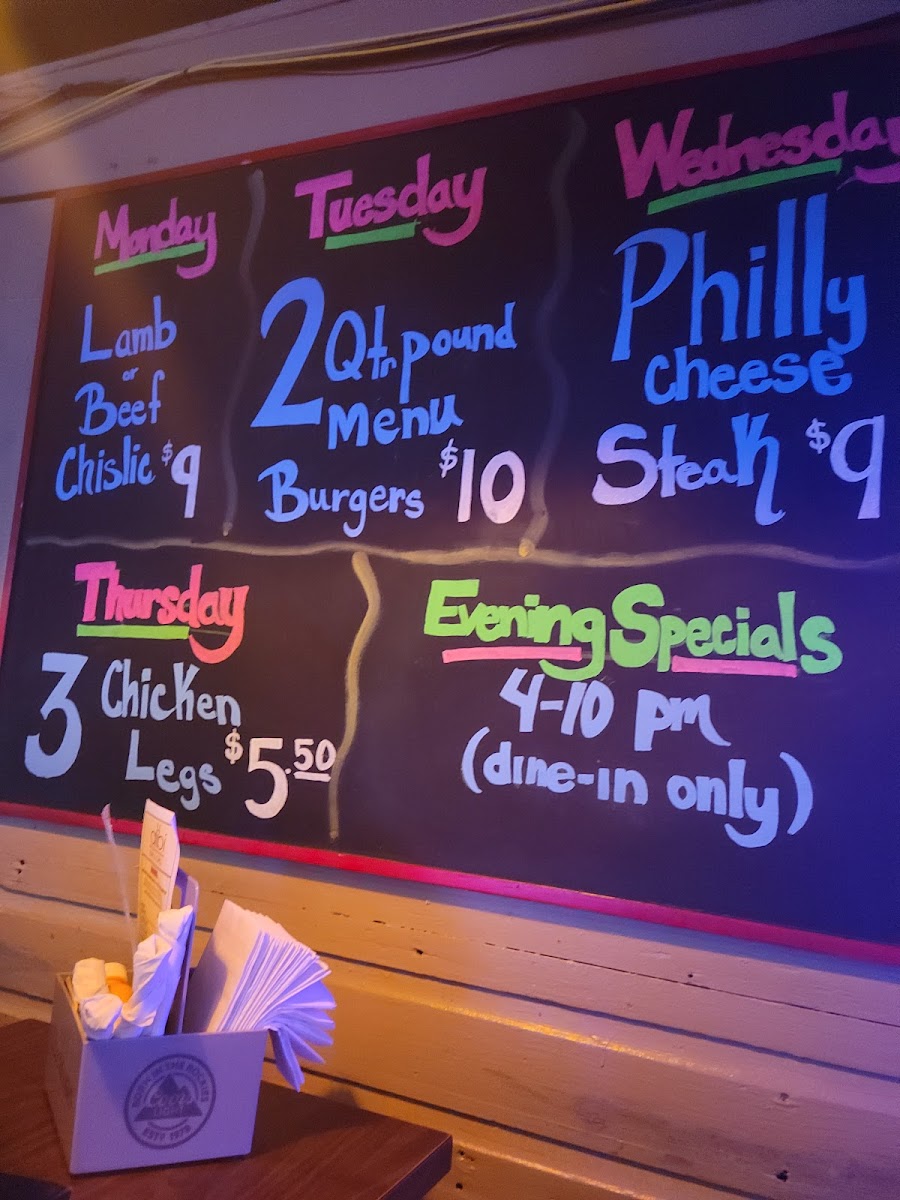 Monday
Lamb
or
Beef
Chislic $9
Tuesday
2 Qtr pound
Menu
Burgers $10
Wednesday
Philly
Cheese
Steak $9
Thursday
3 Chicken
Legs $5.50
Evening Specials
4-10 pm
(dine-in only)
BORN IN THE ROCKIES
Coors
LIGHT
EST'D 1978